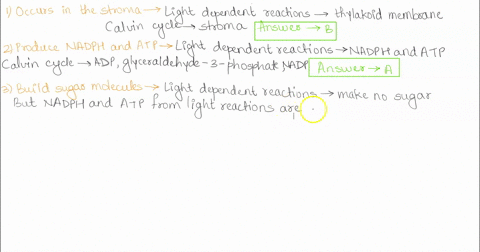 1) Occurs in the stroma → Light dependent reactions → thylakoid membrane
Calvin cycle → stroma Answer → B
2) Produce NADPH and ATP → Light dependent reactions → NADPH and ATP
Calvin cycle → ADP, glyceraldehyde-3-phosphate NADP Answer → A
3) Build sugar molecules → Light dependent reactions → make no sugar
But NADPH and ATP from light reactions are